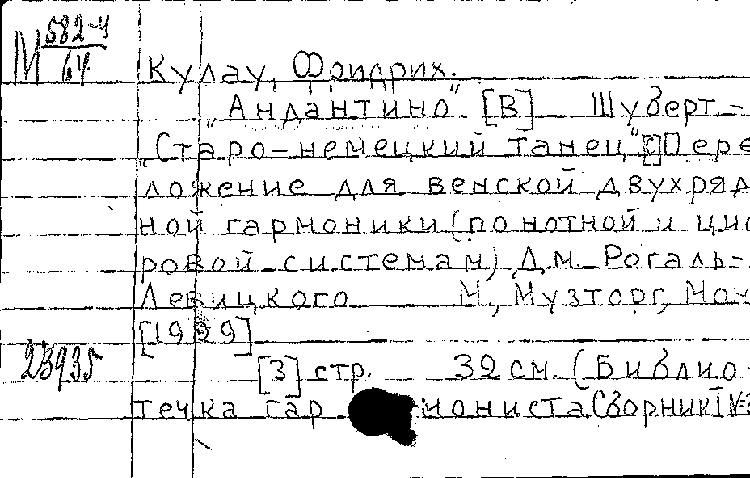 М 582-4
64
Кулау, Фридрих.
„Андантино" [В] Шуберт-
„Старо-немецкий танец" [Пере
ложение для венской двухряд
ной гармоники (по нотной и циф
ровой системам) Дм. Рогаль-
Левицкого М, Музторг, Мон
[1929]
23935 [3] стр. 32 см. (Библио
течка гармониста Сборник I №3